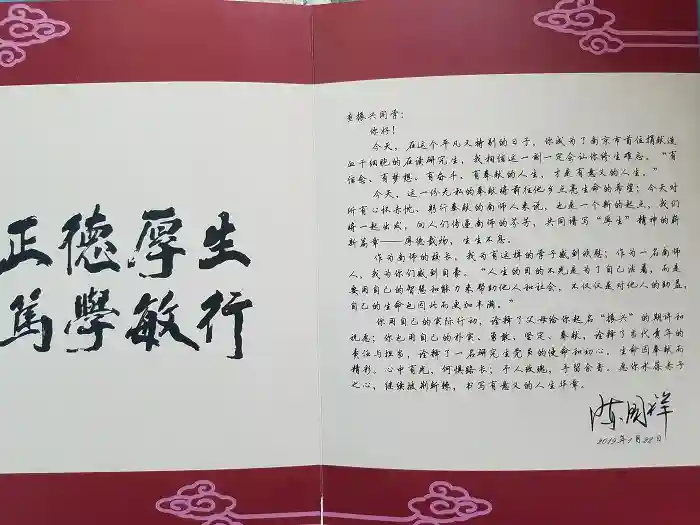 正德厚生
篤學敏行
查振兴同学：
你好！
今天，在这个平凡又特别的日子，你成为了南京市首位捐献造
血干细胞的在读研究生，我相信这一刻一定会让你终生难忘。“有
信念、有梦想、有奋斗、有奉献的人生，才是有意义的人生。”
今天，这一份无私的奉献将前往他乡点亮生命的希望；今天对
所有心怀赤忱、躬行奉献的南师人来说，也是一个新的起点，我们
将一起出发，向人们传递南师的芬芳，共同谱写“厚生”精神的崭
新篇章——厚德载物，生生不息。
作为南师的校长，我为有这样的学子感到骄傲；作为一名南师
人，我为你们感到自豪。“人生的目的不光是为了自己活着，而是
要用自己的智慧和能力来帮助他人和社会，不仅仅是对他人的助益，
自己的生命也因此而更加丰满。”
你用自己的实际行动，诠释了父母给你起名“振兴”的期许和
祝愿；你也用自己的朴实、勇敢、坚定、奉献，诠释了当代青年的
责任与担当，诠释了一名研究生党员的使命和初心。生命因奉献而
精彩。心中有光，何惧路长；予人玫瑰，手留余香。愿你永葆赤子
之心，继续披荆斩棘，书写有意义的人生华章。
陈国祥
2019年1月22日